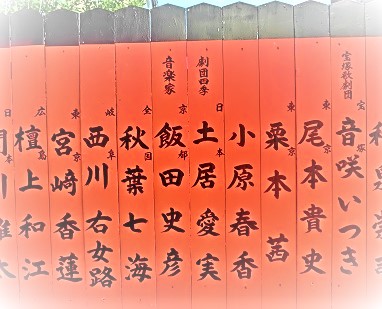 宝塚歌劇団 宝塚 音咲いつき
東京 尾本貴史
東京 栗本茜
小原春香
劇団四季 日本 土居愛実
音楽家 京都 飯田史彦
全国 秋葉七海
岐阜 西川右女路
東京 宮崎香蓮
広島 檀上和江